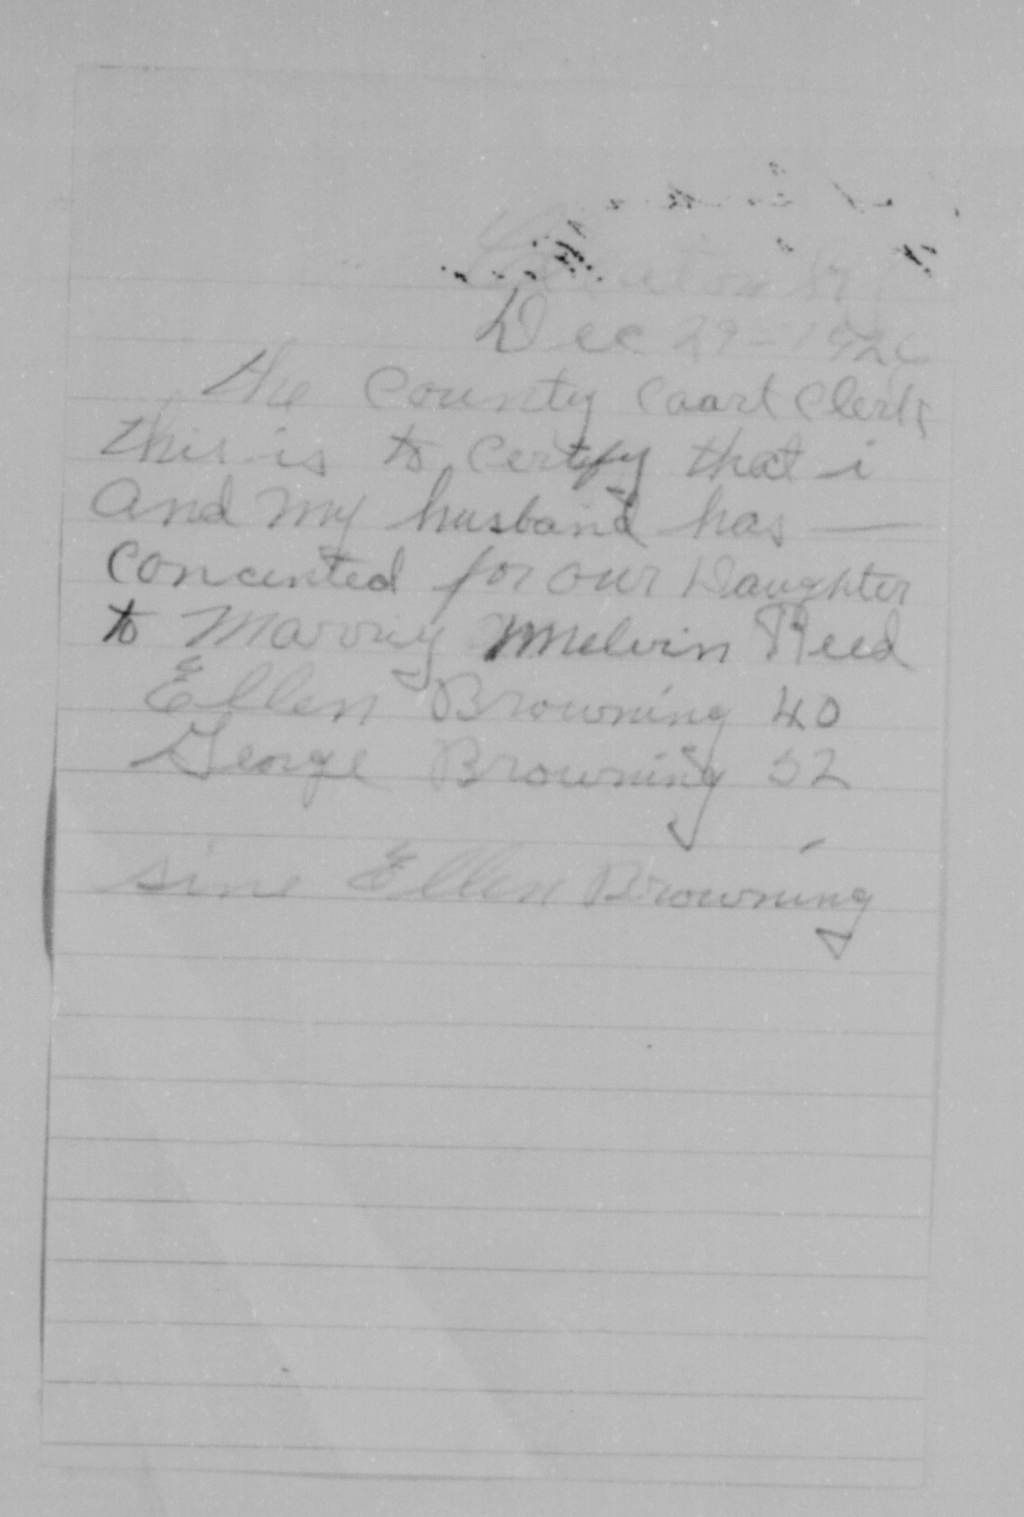 Dec 29-1926
the County Caart Clerk
this is to Certify that i
and my husband has —
concented for our Daughter
to Marriy Melvin Reed
Ellen Browning 40
George Browning 52
sine Ellen Browning